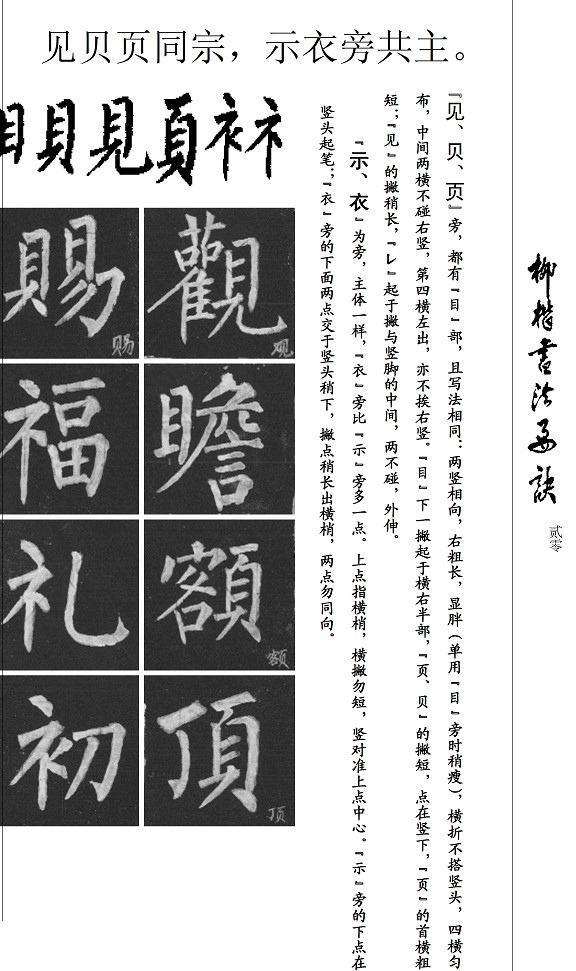 见贝页同宗，示衣旁共主。
柳楷書法要訣
贰零
『见、贝、页』旁，都有『目』部，且写法相同：两竖相向，右粗长，显胖（单用『目』旁时稍瘦），横折不搭竖头，四横匀
布，中间两横不碰右竖，第四横左出，亦不挨右竖。『目』下一撇起于横右半部，『页、贝』的撇短，点在竖下，『页』的首横粗
短；『见』的撇稍长，『乚』起于撇与竖脚的中间，两不碰，外伸。
『示、衣』为旁，主体一样，『衣』旁比『示』旁多一点。上点指横梢，横撇勿短，竖对准上点中心。『示』旁的下点在
竖头起笔；『衣』旁的下面两点交于竖头稍下，撇点稍长出横梢，两点勿同向。
礻衤頁見貝目
觀
观
瞻
額
额
頂
顶
賜
赐
福
礼
初